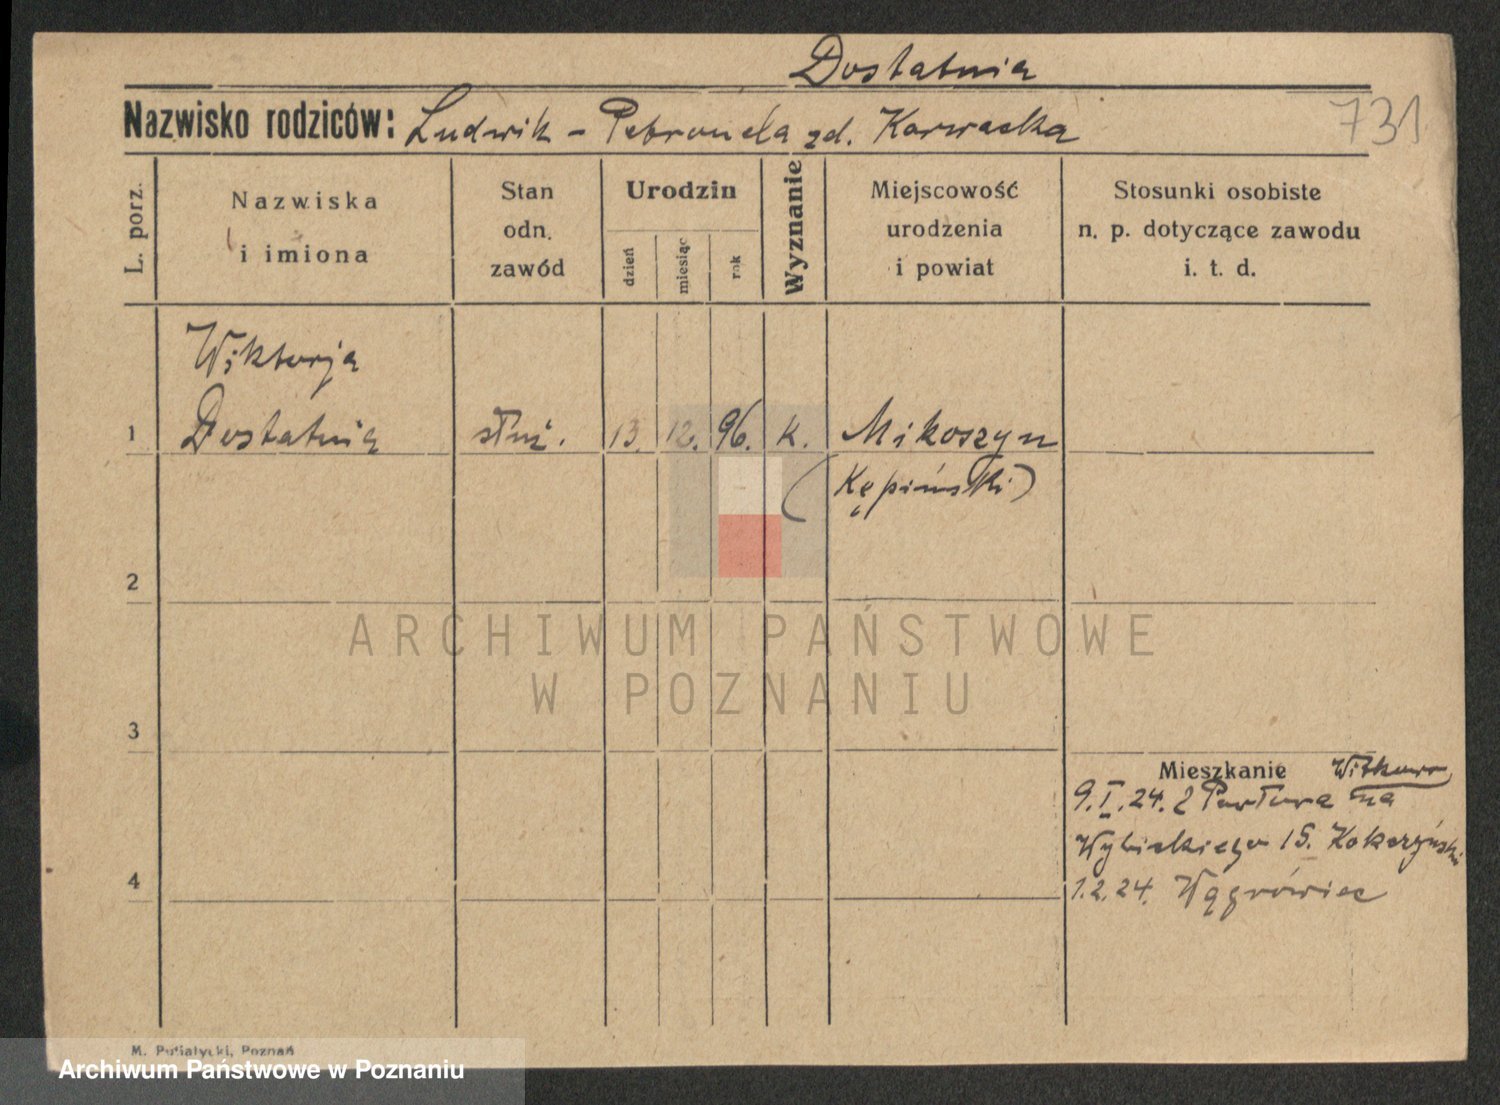 Dostatnia
Nazwisko rodziców: Ludwik - Petronela zd. Karwacka
731
L. porz.
Nazwiska
i imiona
Stan
odn.
zawód
Urodzin
dzień
miesiąc
rok
Wyznanie
Miejscowość
urodzenia
i powiat
Stosunki osobiste
n. p. dotyczące zawodu
i. t. d.
Wiktorja
1 Dostatnia służ. 13. 12. 96. k. Mikoszyn
(Kępiński)
2
3
4
ARCHIWUM PAŃSTWOWE
W POZNANIU
Mieszkanie Witkowo
9.I.24. z na
Wybickiego 15. Kokorzyński
1.2.24. Wągrówiec
M. Putiatycki, Poznań
Archiwum Państwowe w Poznaniu